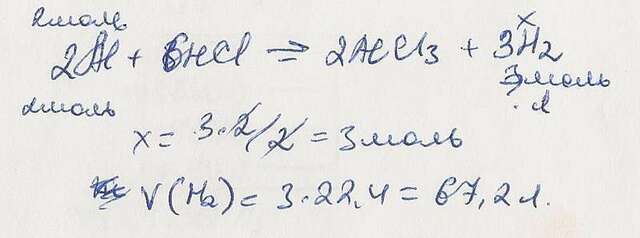 2моль x
2Al + 6HCl = 2AlCl3 + 3H2
2моль 3моль
x = 3·2/2 = 3моль
V(H2) = 3·22,4 = 67,2 л.